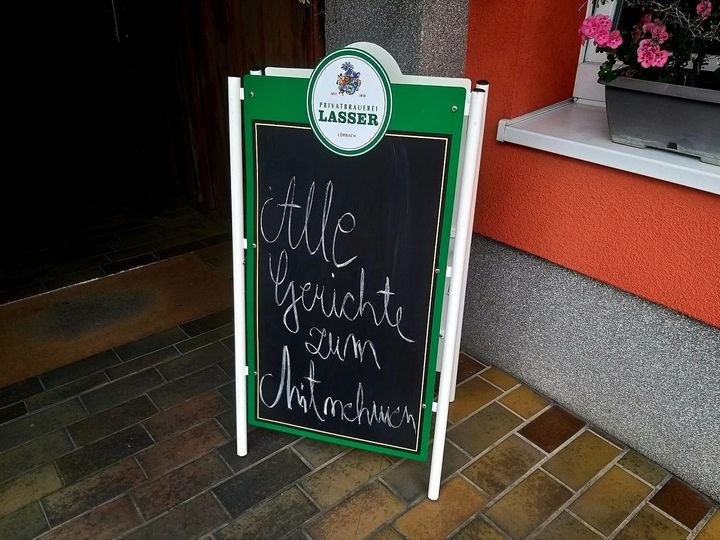 SEIT 1850
PRIVATBRAUEREI
LASSER
LÖRRACH
Alle
Gerichte
zum
Mitnehmen